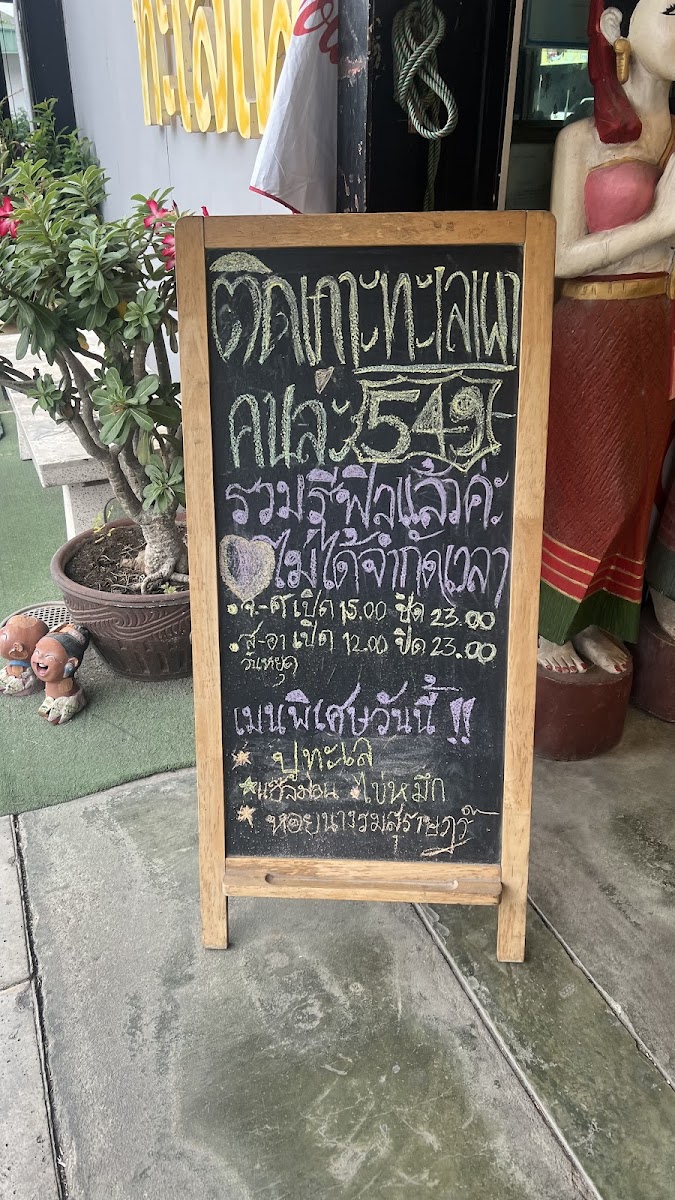 ทะเลเผา
ติดเกาะทะเลเผา
คนละ 549.-
รวมรีฟิลแล้วค่ะ
ไม่ได้จำกัดเวลา
• จ.-ศ เปิด 15.00 ปิด 23.00
• ส-อา เปิด 12.00 ปิด 23.00
วันหยุด
เมนูพิเศษวันนี้ !!
ปูทะเล
แซลมอน ไข่หมึก
หอยนางรมสุราษฎร์